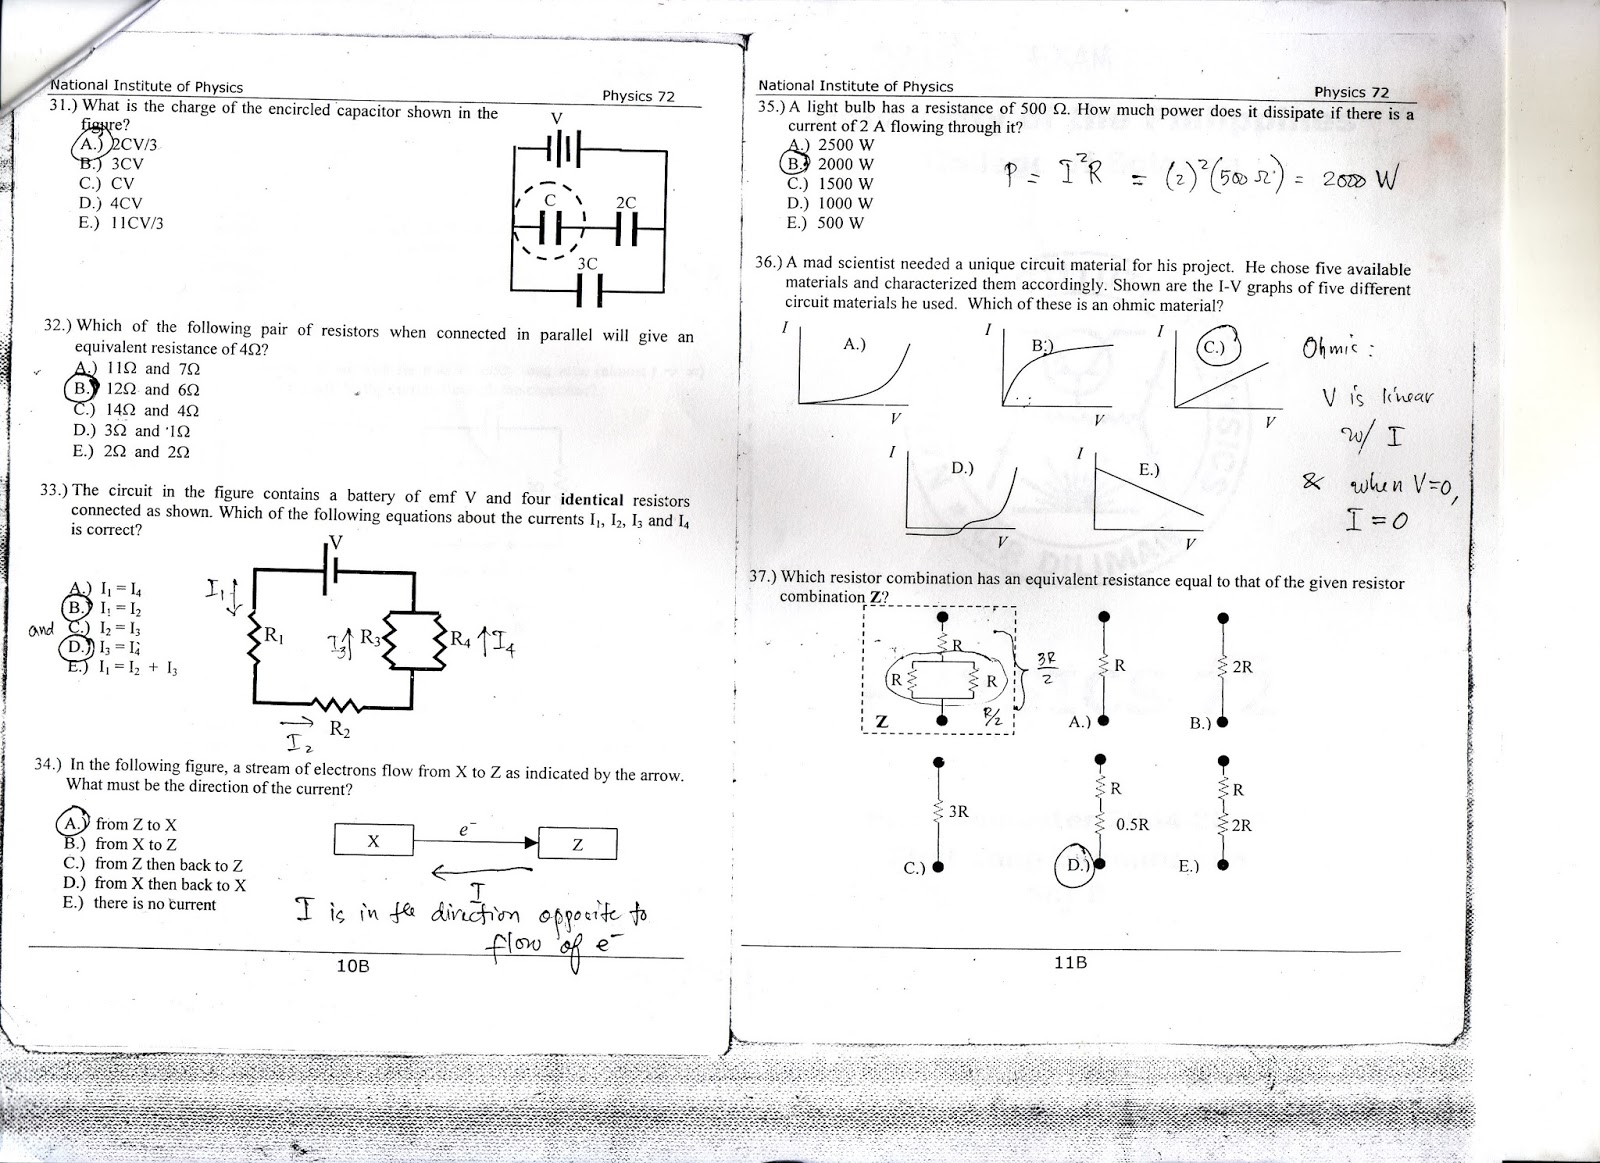 National Institute of Physics
Physics 72
31.) What is the charge of the encircled capacitor shown in the
figure?
A.) 2CV/3
B.) 3CV
C.) CV
D.) 4CV
E.) 11CV/3
V
C
2C
3C
32.) Which of the following pair of resistors when connected in parallel will give an
equivalent resistance of 4Ω?
A.) 11Ω and 7Ω
B.) 12Ω and 6Ω
C.) 14Ω and 4Ω
D.) 3Ω and 1Ω
E.) 2Ω and 2Ω
33.) The circuit in the figure contains a battery of emf V and four identical resistors
connected as shown. Which of the following equations about the currents I₁, I₂, I₃ and I₄
is correct?
A.) I₁ = I₄
B.) I₁ = I₂
and C.) I₂ = I₃
D.) I₃ = I₄
E.) I₁ = I₂ + I₃
V
I₁
R₁
I₃ R₃
R₄ I₄
R₂
I₂
34.) In the following figure, a stream of electrons flow from X to Z as indicated by the arrow.
What must be the direction of the current?
A.) from Z to X
B.) from X to Z
C.) from Z then back to Z
D.) from X then back to X
E.) there is no current
X
e⁻
Z
I
I is in the direction opposite to
flow of e⁻
10B
National Institute of Physics
Physics 72
35.) A light bulb has a resistance of 500 Ω. How much power does it dissipate if there is a
current of 2 A flowing through it?
A.) 2500 W
B.) 2000 W
C.) 1500 W
D.) 1000 W
E.) 500 W
P = I²R = (2)²(500 Ω) = 2000 W
36.) A mad scientist needed a unique circuit material for his project. He chose five available
materials and characterized them accordingly. Shown are the I-V graphs of five different
circuit materials he used. Which of these is an ohmic material?
I
A.)
V
I
B.)
V
I
C.)
V
I
D.)
V
I
E.)
V
Ohmic :
V is linear
w/ I
& when V=0,
I = 0
37.) Which resistor combination has an equivalent resistance equal to that of the given resistor
combination Z?
R
R
R
Z
R/2
3R/2
R
A.)
2R
B.)
3R
C.)
R
0.5R
D.)
R
2R
E.)
11B